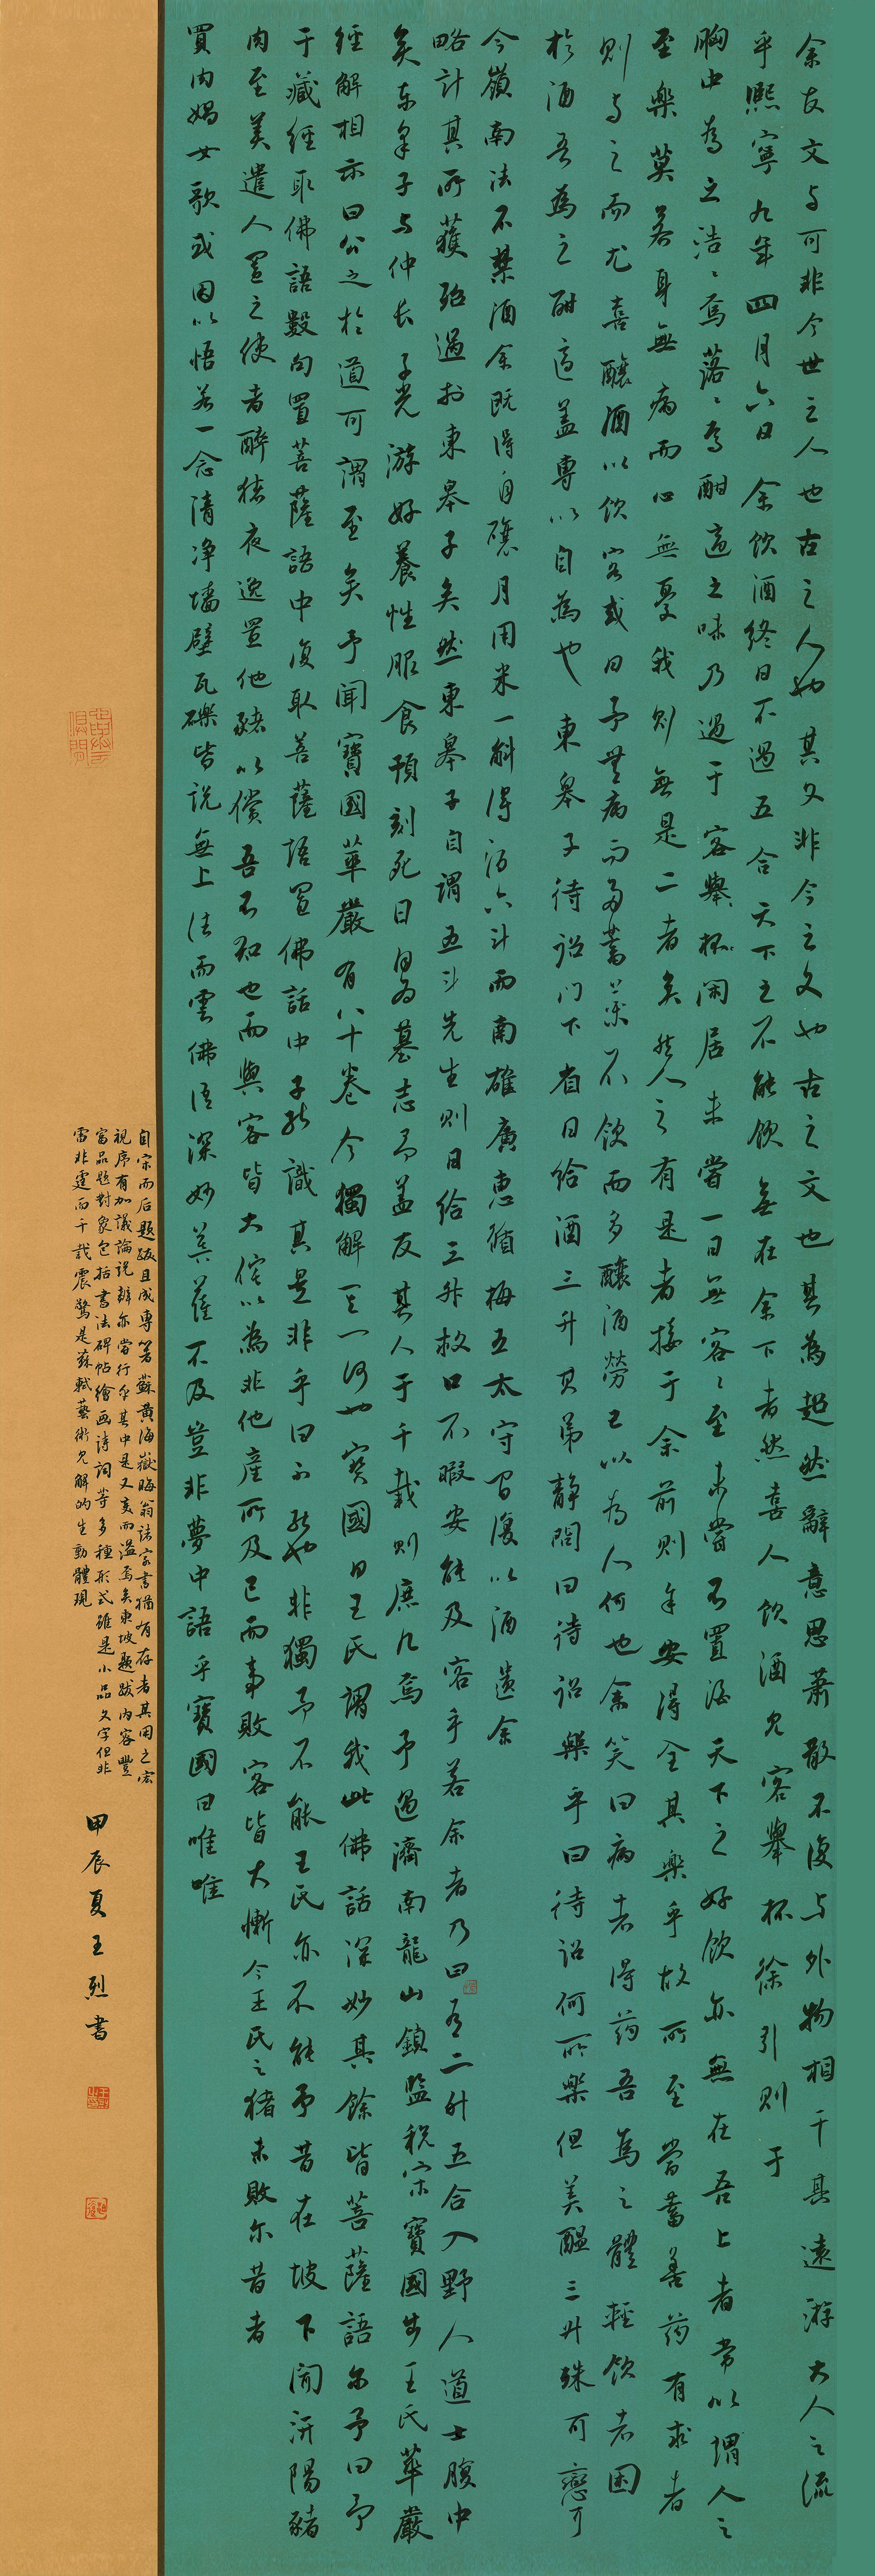 余友文与可非今世之人也古之人也其文非今之文也古之文也其為超然辭意思蕭散不復与外物相干其遠游大人之流
乎熙寧九年四月六日余飲酒終日不過五合天下之不能飲無在余下者然喜人飲酒見客舉杯徐引則于
胸中為之浩浩焉落落焉酣適之味乃過于客舉杯閑居未嘗一日無客客至未嘗不置酒天下之好飲亦無在吾上者常以謂人之
至樂莫若身無病而心無憂我則無是二者矣然人之有是者接于余前則余安得全其樂乎故所至嘗蓄善药有求者
則与之而尤喜釀酒以飲客或曰予無病而多蓄药不飲而多釀酒勞己以為人何也余笑曰病者得药吾為之體輕飲者困
於酒吾為之酣適蓋專以自為也東皋子待詔门下省日给酒三升其弟靜問曰待詔樂乎曰待詔何所樂但美醞三升殊可戀可
今嶺南法不禁酒余既得自釀月用米一斛得酒六斗而南雄廣惠循梅五太守间復以酒遺余
略計其所獲殆過於東皋子矣然東皋子自謂五斗先生則日给三升救口不暇安能及客乎若余者乃日有二升五合入野人道士腹中
矣东皋子与仲长子光游好養性服食預刻死日自為墓志予蓋友其人于千載則庶几焉予過濟南龍山鎮監稅宋寶國出王氏華嚴
經解相示曰公之於道可謂至矣予聞寶國華嚴有八十卷今獨解其一何也寶國曰王氏謂我此佛語深妙其餘皆菩薩語尔予曰予
于藏經取佛語數句置菩薩語中復取菩薩語置佛語中子能識其是非乎曰不能也非獨予不能王氏亦不能予昔在坡下聞汧陽豬
肉至美遣人置之使者醉豬夜逸置他豬以償吾不知也而與客皆大侘以為非他產所及已而事敗客皆大慚今王氏之猪未敗尔昔者
買肉娼女歌或因以悟若一念清净墻壁瓦礫皆说無上法而雲佛语深妙菩薩不及豈非夢中語乎寶國曰唯唯
自宗而后题跋且成專著蘇黄海嶽晦翁诸家書猶有存者其用之宏
視序有加議論说辨亦當行乎其中是又变而溢焉矣東坡题跋内容豐
富品题對象包括書法碑帖繪画詩詞等多種形式雖是小品文字但非
雷非霆而千载震驚是蘇軾藝術見解的生動體現
甲辰夏王烈書